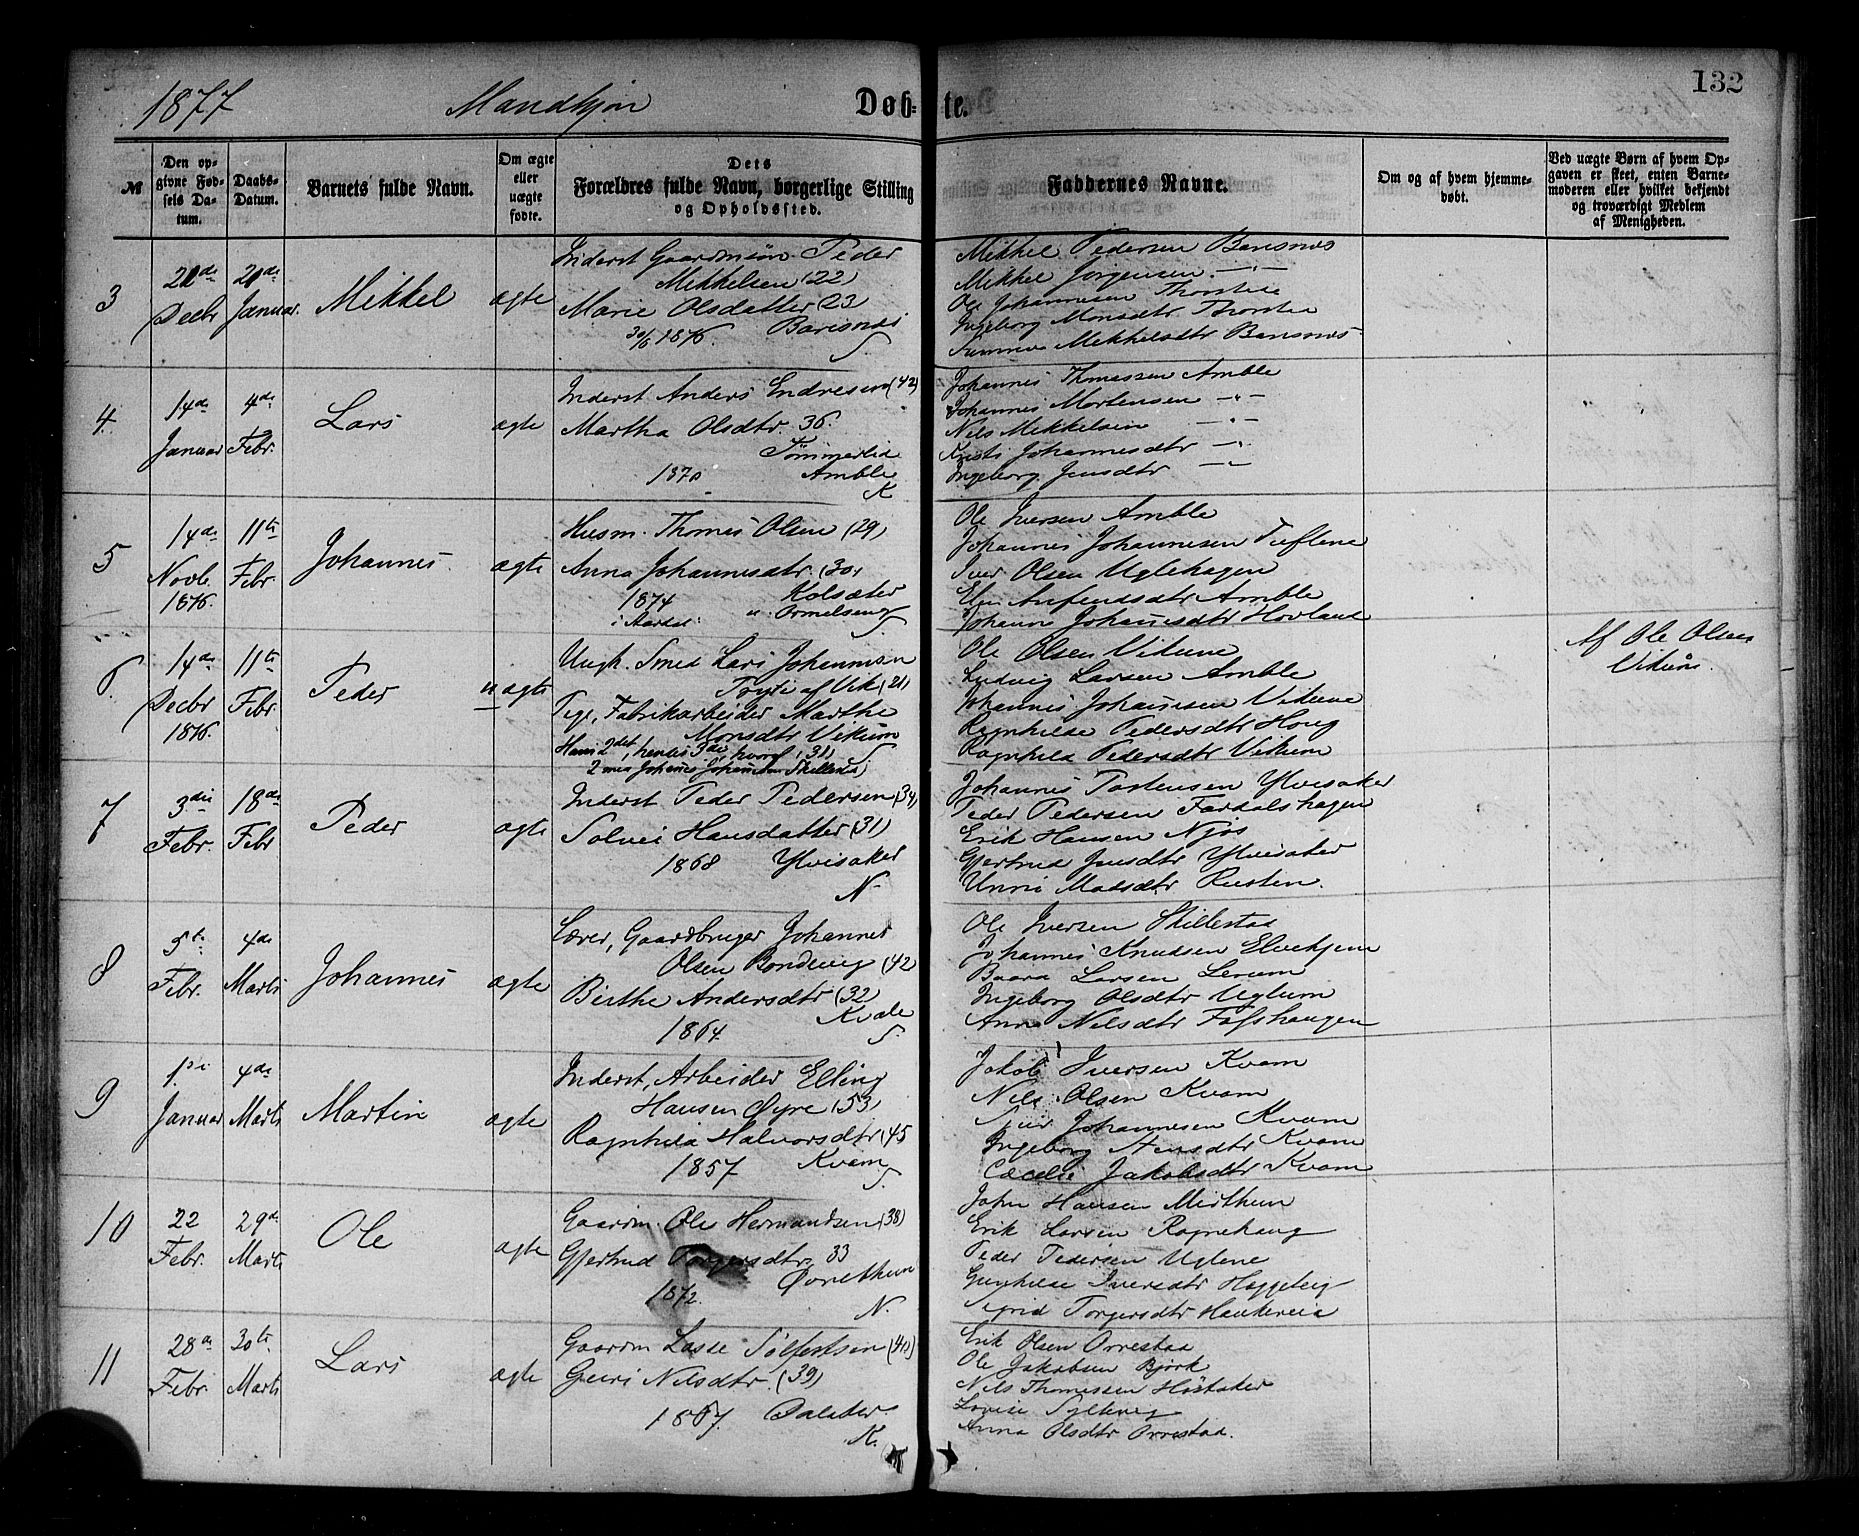 132
1877 Mandkjøn Døbte.
№
Den opgivne Fødsels Datum.
Daabs-Datum.
Barnets fulde Navn.
Om ægte eller uægte fødte.
Dets Forældres fulde Navn, borgerlige Stilling og Opholdssted.
Faddernes Navne.
Om og af hvem hjemmedøbt.
Ved uægte Børn af hvem Opgaven er skeet, enten Barnemoderen eller hvilket bekjendt og troværdigt Medlem af Menigheden.
3
Decbr
Januar
Mikkel
ægte
Inderst Gaardmsøn Peder
Mikkelsen (22)
Marie Olsdatter (23
1876. Barsnæs
S
Mikkel Pedersen Barsnæs
Mikkel Jørgensen —"—
Ole Johannesen
Ingeborg Monsdtr
Mikkelsdtr Barsnæs
4
14de Januar
4de Febr.
Lars
ægte
Inderst Anders Endresen (42)
Martha Olsdtr. 36.
Tømmerlid
1870 Amble
K
Johannes Thomassen Amble
Johannes Mortensen —"—
Nils Mikkelsen —"—
Kristi Johannesdtr —"—
Ingeborg Jensdtr —"—
5
14de Novb. 1876.
11te Febr
Johannes.
ægte
Husm. Thomas Olsen (29)
Anna Johannesdtr. (30)
1874 Holsæter
i Aardal " Ormelseng
S
Ole Iversen Amble
Johannes Johannesen Tuftene
Iver Olsen Uglehagen
Anfindsdtr Amble
Johanne Johannesdtr Hovland
6
14de Decbr 1876.
11te Febr
Peder
uægte
Ungk. Smed Lars Johannesen
af Vik (21)
Pige, Fabrikarbeider Marthe
Monsdtr Vikum
Hans 2det, hendes 3die, hvoraf (31)
2 med Johannes Johannesen Skillestad S
Ole Olsen Vikum
Ludvig Larsen Amble
Johannes Johannesen Vikum
Ragnhilde Pedersdtr Houg
Ragnhild Pedersdtr Vikum
Af Ole Olsen
Vikum.
7
3die Febr.
18de Febr
Peder
ægte
Inderst Peder Pedersen (34)
Solvei Hansdatter (31)
1868 Ylvisaker
N.
Johannes Tostensen Ylvisaker
Peder Pedersen Fardalshagen
Erik Hansen Njøs
Gjertrud Jensdtr Ylvisaker
Unni Madsdtr Rusten.
8
5te Febr.
4de Marts
Johannes
ægte
Lærer, Gaardbruger Johannes
Olsen Bondevig (42
Birthe Andersdtr (32)
1864. Kvale
S.
Ole Iversen Skillestad
Johannes Knudsen Elvekjem
Baard Larsen Lerum
Ingeborg Olsdtr Uglum
Anna Nilsdtr
9
1ste Januar
4de Marts
Martin
ægte
Inderst, Arbeider Elling
Hansen Øyre (53)
Ragnhild Halvorsdtr (45
1857 Kvam
S.
Jakob Iversen Kvam
Nils Olsen Kvam
Johannesen Kvam
Ingeborg Kvam
Cæcelie Jakobsdtr Kvam
10
22 Febr.
29de Marts
Ole
ægte
Gaardm. Ole Hermandsen (38)
Gjertrud Torgersdtr. 33
1872.
N.
John Hansen
Erik Larsen
Peder Pedersen Uglene
Gunhilde Iversdtr Heggeberg
Sigrid Torgersdtr
11
28de Febr.
30te Marts
Lars
ægte
Gaardm Lasse (40)
Guri Nilsdtr. (39)
1867.
K.
Erik Olsen Orrestad
Ole Jakobsen Bjørk
Nils Thomassen
Lovise
Anna Olsdtr Orrestad.